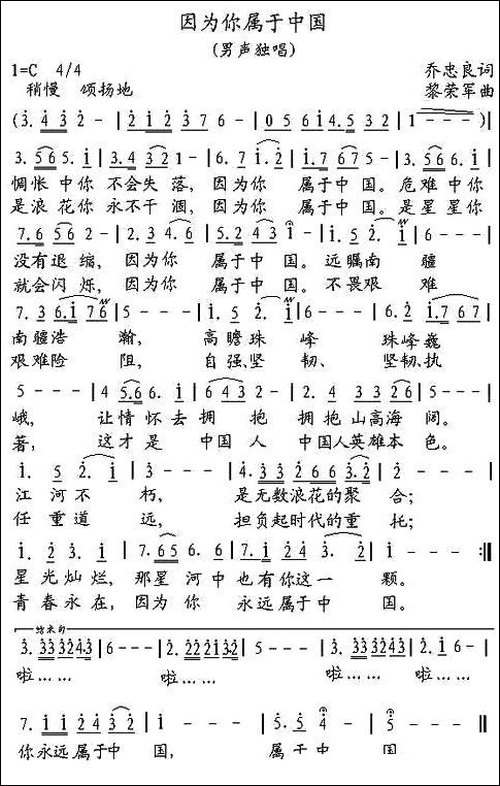 因为你属于中国
(男声独唱)
1=C 4/4 乔忠良词
稍慢 颂扬地 黎荣军曲
(3. 4 3 2 - | 2 1 2 3 7 6 - | 0 5 6 1 4.5 3 2 | 1 - - - )|
3. 5 6 5. 1 | 3. 4 3 2 1 - | 6. 7 1. 2 | 1. 7 6 7 5 - | 3. 5 6 5. 1 |
惆怅中你 不会失落, 因为你 属于中国。危难中你
是浪花你 永不干涸, 因为你 属于中国。是星星你
7. 6 5 6 2 - | 2. 3 4. 6 | 5. 2 4 3 1 - | 1. 5 2. 1 | 6 - - - |
没有退缩, 因为你 属于中国。远瞩南疆
就会闪烁, 因为你 属于中国。不畏艰难
7. 3 6 1 7 6 | 5 - - - | 1. 5 2. 1 | 6 - - - | 6 2. 1. 7 6 7 |
南疆浩瀚, 高瞻珠峰 珠峰巍
艰难险阻, 自强坚韧、 坚韧执
5 - - - | 4 5. 6 6. 1 | 6 4 3 2 | 4. 3 3 2 6 | 5 - - - |
峨, 让情怀去拥抱 拥抱山高海阔。
著, 这才是中国人 中国人英雄本色。
1. 5 2. 1 | 3 - - - | 4. 3 3 2 6 6 3. 2 | 2 - - - |
江河不朽, 是无数浪花的聚合;
任重道远, 担负起时代的重托;
1. 2 3. 5 | 7. 6 5 6 6. | 7. 1 2 4 3. 2 | 1 - - - :‖
星光灿烂, 那星河中也有你这一颗。
青春永在, 因为你 永远属于中国。
结束句
3. 3 3 3 2 4 3 | 6 - - - | 2. 2 2 2 1 3 2 | 5 - - - | 3. 3 3 3 2 4 3 | 2. 3 3 3 2 4 3 |
啦…… 啦…… 啦…… 啦……
7. 1 1 2 4 3 2 | 1 - - - | 5. 5 4 - | 5 - - - ‖
你永远属于中国, 属于中国